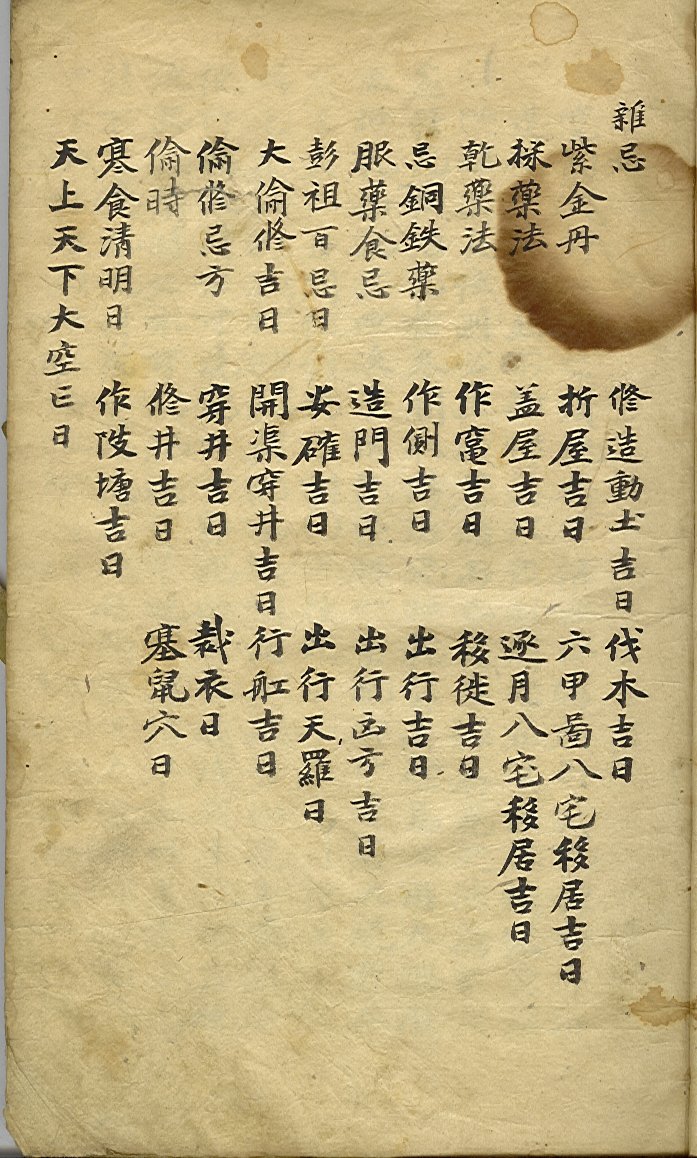 雜忌
紫金丹
採藥法
乾藥法
忌銅鉄藥
服藥食忌
彭祖百忌日
大倫修吉日
倫修忌方
倫時
寒食清明日
天上天下大空亡日
修造動土吉日
折屋吉日
盖屋吉日
作竃吉日
作側吉日
造門吉日
安確吉日
開渠穿井吉日
穿井吉日
修井吉日
作陂塘吉日
伐木吉日
六甲啚八宅移居吉日
逐月八宅移居吉日
移徙吉日
出行吉日
出行凶方吉日
出行天羅日
行舡吉日
裁衣日
塞鼠穴日